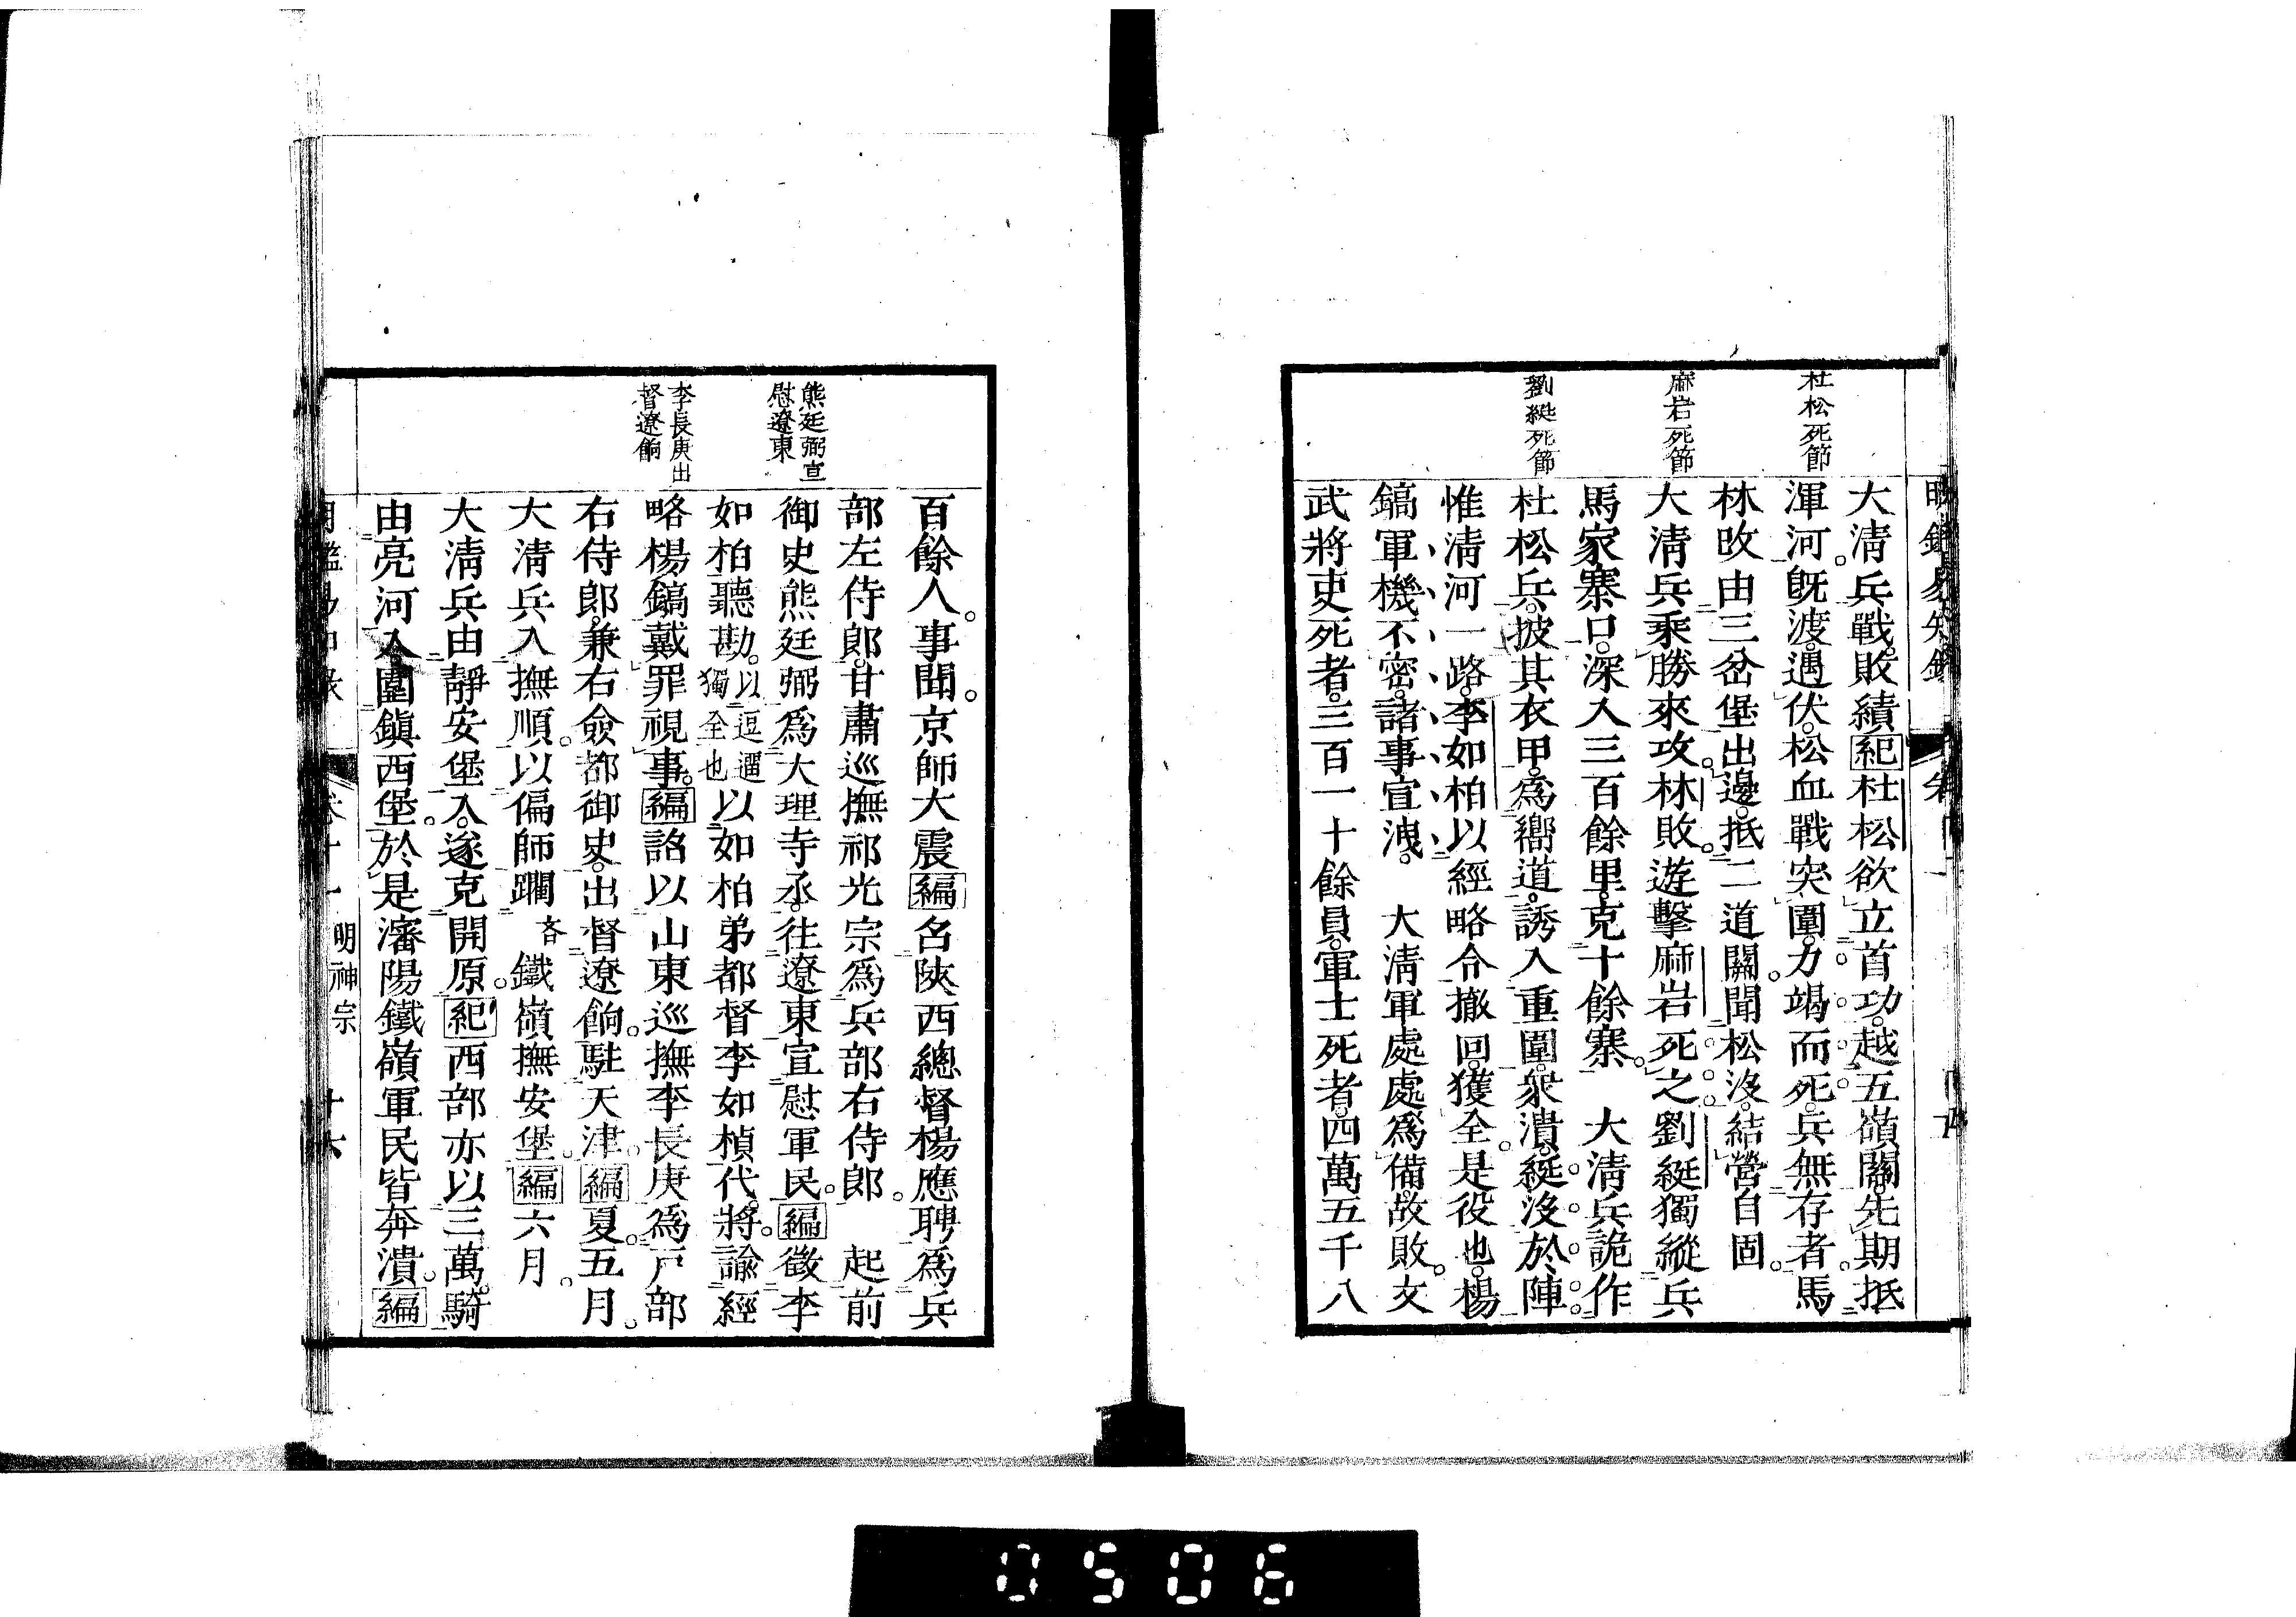 杜松死節
麻岩死節
劉綎死節
大淸兵戰敗績紀杜松欲立首功越五嶺關先期抵
渾河旣渡遇伏松血戰突圍力竭而死兵無存者馬
林攻由三岔堡出邊抵二道關聞松沒結營自固
大淸兵乘勝來攻林敗遊擊麻岩死之劉綎獨縱兵
馬家寨口深入三百餘里克十餘寨 大淸兵詭作
杜松兵披其衣甲爲嚮道誘入重圍衆潰綎沒於陣
惟淸河一路李如柏以經略令撤回獲全是役也楊
鎬軍機不密諸事宣洩 大淸軍處處爲備故敗文
武將吏死者三百一十餘員軍士死者四萬五千八
熊廷弼宣
慰遼東
李長庚出
督遼餉
百餘人事聞京師大震編名陝西總督楊應聘爲兵
部左侍郞甘肅巡撫祁光宗爲兵部右侍郞 起前
御史熊廷弼爲大理寺丞往遼東宣慰軍民編徵李
如柏聽勘以逗遛獨全也以如柏弟都督李如楨代將諭經
略楊鎬戴罪視事編詔以山東巡撫李長庚爲戸部
右侍郞兼右僉都御史出督遼餉駐天津編夏五月
大淸兵入撫順以偏師躙吝鐵嶺撫安堡編六月
大淸兵由靜安堡入遂克開原紀西部亦以三萬騎
由亮河入圍鎭西堡於是瀋陽鐵嶺軍民皆奔潰編
明神宗 十六
0506